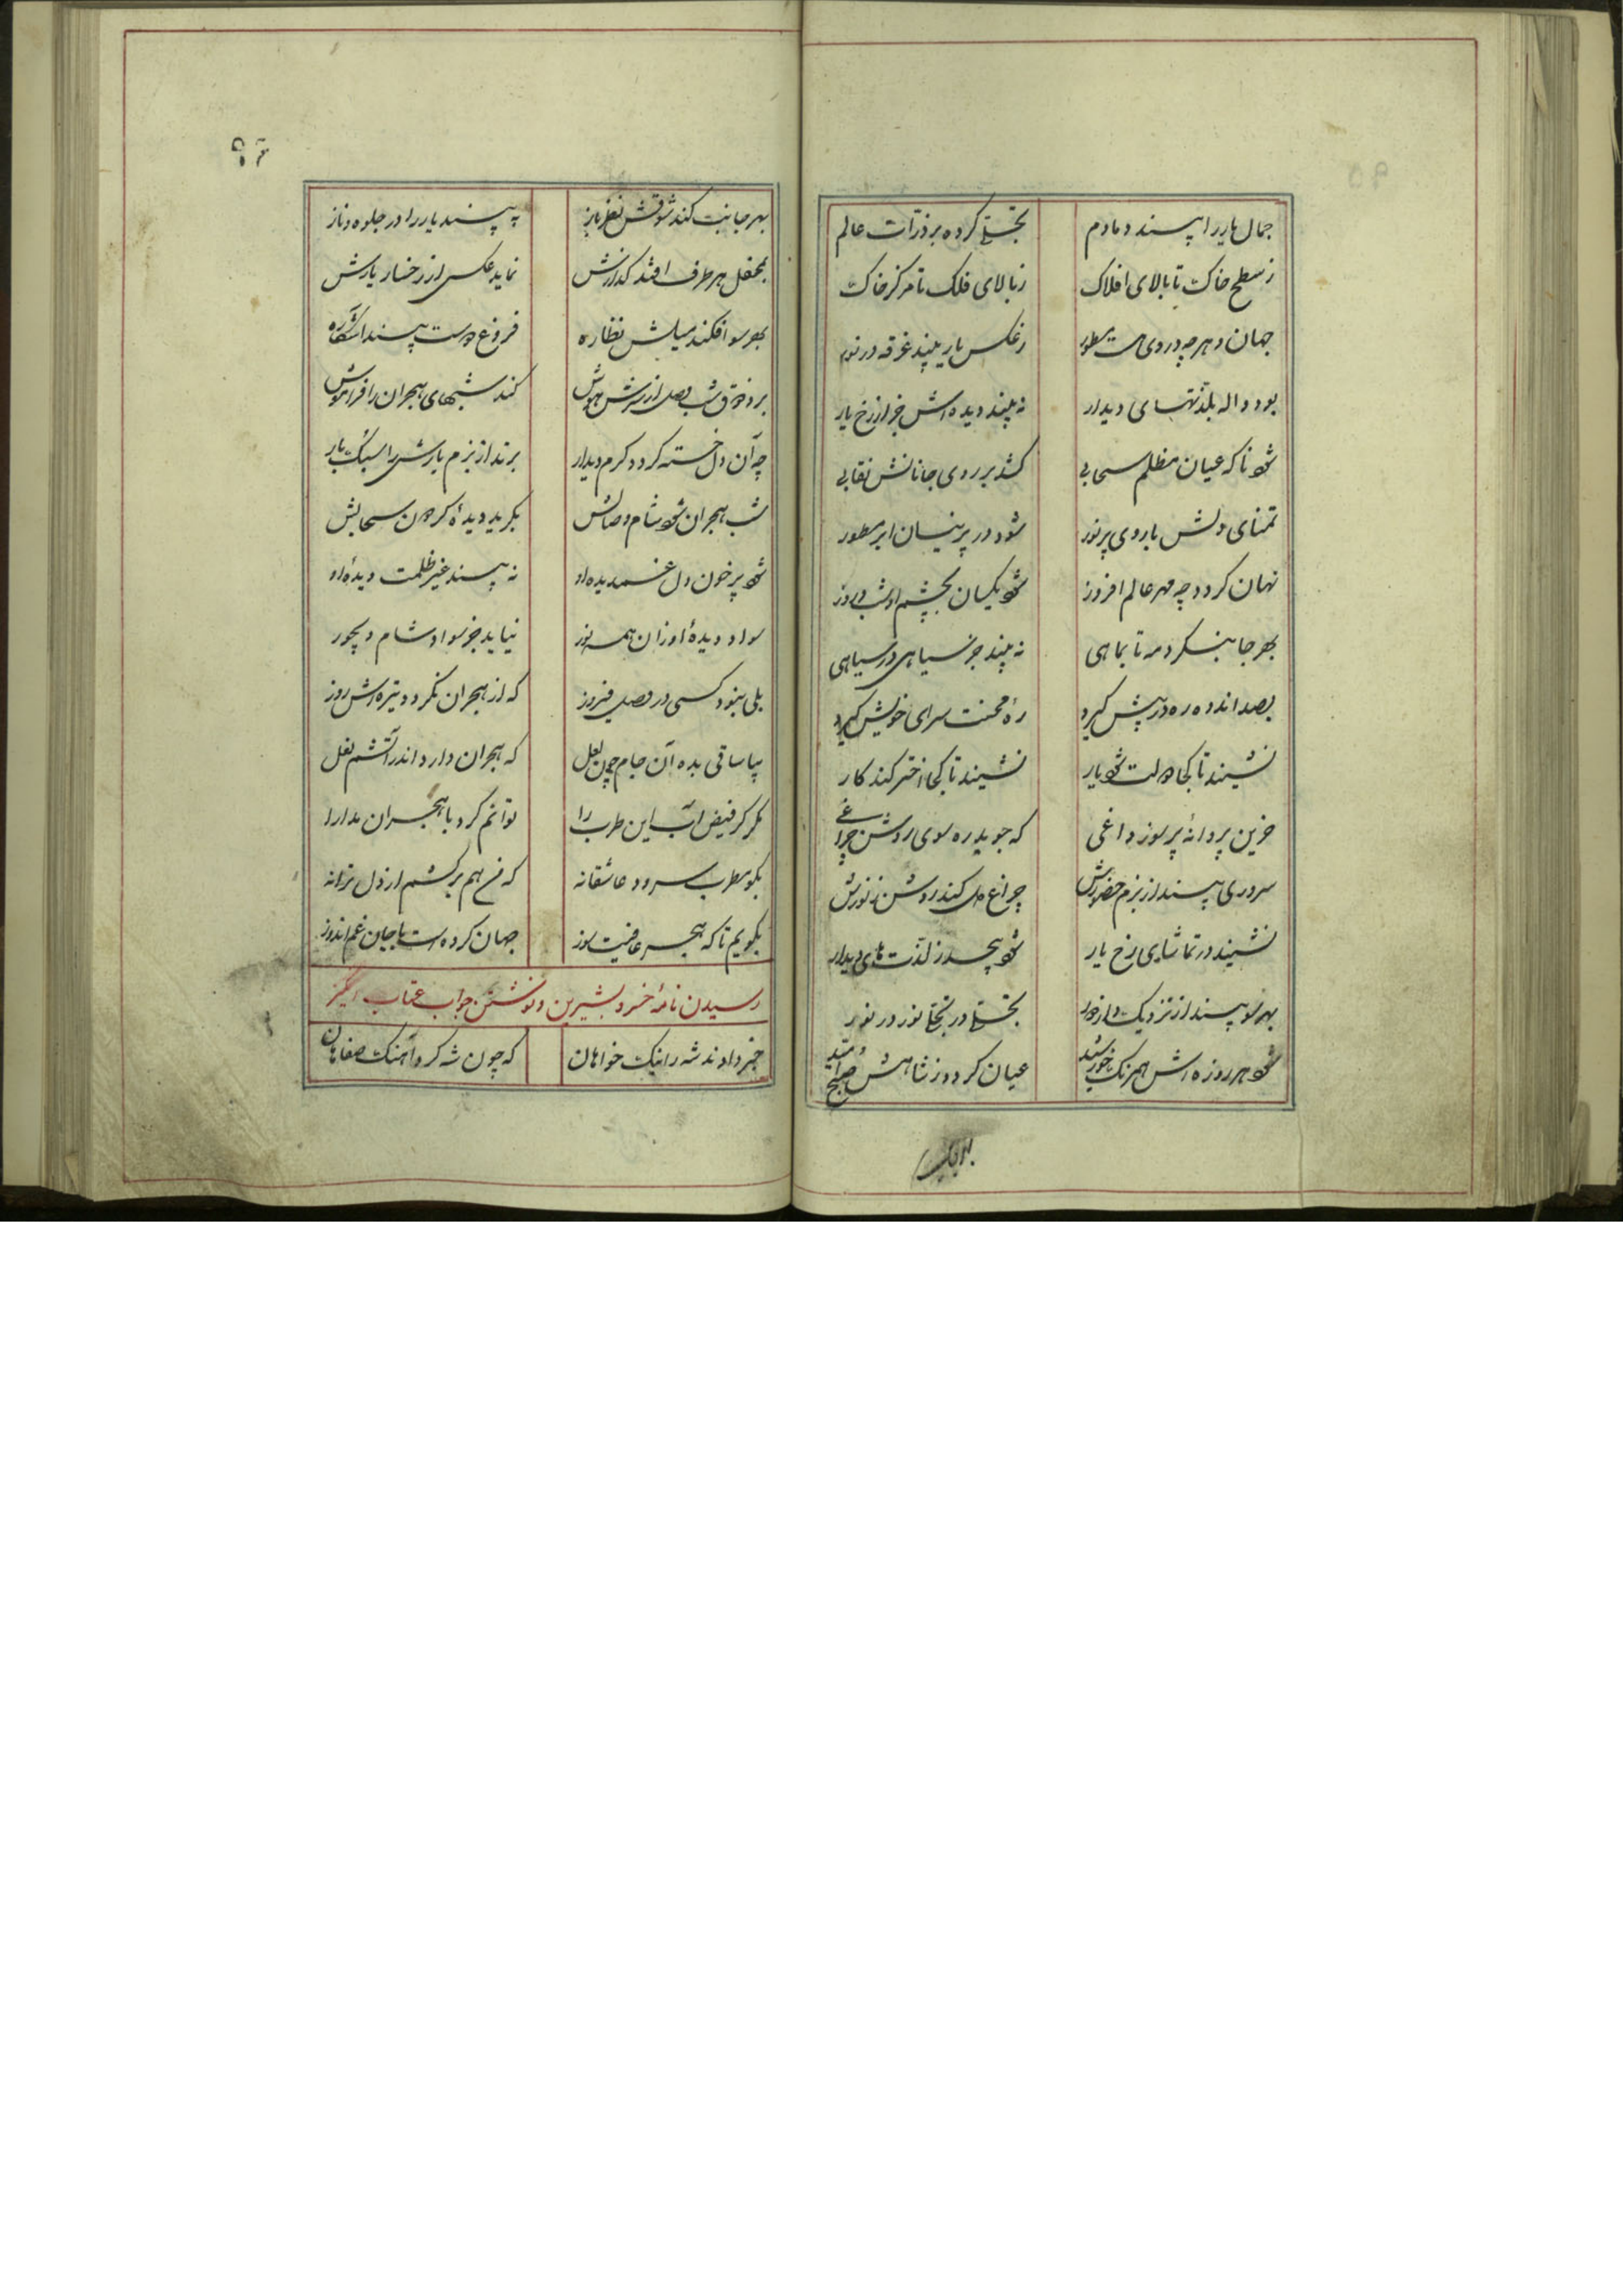 جمال یار را بیند دمادم
تجلی کرده بر ذرات عالم
ز سطح خاک تا بالای افلاک
ز بالای فلک تا مرکز خاک
جهان و هر چه در وی هست مسطور
ز عکس یار بیند غرقه در نور
بود واله بلذتهای دیدار
نه بیند دیده‌اش جز از رخ یار
شود ناکه عیان مظلم سحابی
کشد بر روی جانانش نقابی
تمنای دلش با روی پر نور
شود در پرنیان ابر مسطور
نهان کردد چه مهر عالم افروز
شود یکسان بچشم او شب و روز
بهر جا بنکرد مه تا بماهی
نه بیند جز سیاهی در سیاهی
بصد اندوه ره در پیش کیرد
ره محنت سرای خویش کیرد
نشیند تا کجا دولت شود یار
نشیند تا کجا اختر کند کار
حزین پروانهٔ پر سوز داغی
که جوید ره سوی روشن چراغی
سروری بیند از بزم حضورش
چراغ دل کند روشن ز نورش
نشیند در تماشای رخ یار
شود بیخود ز لذت های دیدار
بهر سو بیند از نزدیک و از دور
تجلی در تجلی نور در نور
شود هر روزه‌اش همرنک خورشید
عیان کردد ز شامش صبح امید
۹۶
بهر جانب کند شوقش نظر باز
به بیند یار را در جلوه و ناز
بمحفل هر طرف افتد کذارش
نماید عکسی از رخسار یارش
بهر سو افکند میلش نظاره
فروغ دوست بیند آشکاره
برد ذوق شب وصل از سرش هوش
کند شبهای هجران را فراموش
چه آن دل خسته کردد کرم دیدار
برند از بزم یارش را سبک بار
شب هجران شود شام وصالش
بکرید دیدهٔ کردون سحابش
شود پر خون دل غمدیده او
نه بیند غیر ظلمت دیدهٔ او
سواد دیدهٔ او زان همه نور
نیابد جز سواد شام دیجور
بلی نبود کسی در وصل فیروز
که از هجران نکردد تیره‌اش روز
بیا ساقی بده آن جام چون لعل
که هجران دارد اندر آتشم نعل
مکر کز فیض آب این طرب را
توانم کرد با هجران مدارا
بکو مطرب سرود عاشقانه
که من هم برکشم از دل ترانه
بکویم تا که هجر عافیت سوز
چهان کرده است با جان غم اندوز
رسیدن نامهٔ خسرو بشیرین و نوشتن جواب عتاب انگیز
خبر دادند شه را نیک خواهان
که چون شه کرد آهنک صفاهان